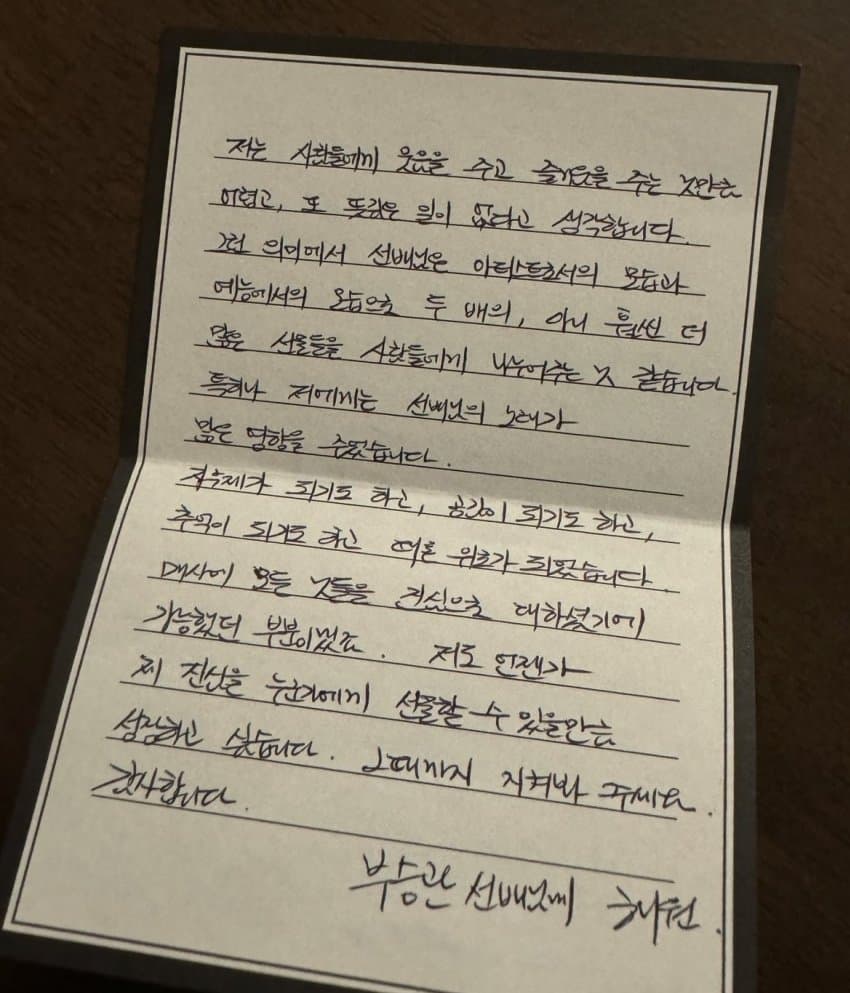 저는 사람들에게 웃음을 주고 즐거움을 주는 것만큼
어렵고, 또 뜻깊은 일이 없다고 생각합니다.
그런 의미에서 선배님은 아티스트로서의 모습과
예능에서의 모습으로 두 배의, 아니 훨씬 더
많은 선물들을 사람들에게 나누어주는 것 같습니다.
특히나 저에게는 선배님의 노래가
많은 영향을 주었습니다.
자극제가 되기도 하고, 공감이 되기도 하고,
추억이 되기도 하고 때론 위로가 되었습니다.
매사에 모든 것들을 진심으로 대하셨기에
가능했던 부분이었죠. 저도 언젠가
제 진심을 누군가에게 선물할 수 있을만큼
성장하고 싶습니다. 그때까지 지켜봐 주세요.
감사합니다.
부승관 선배님께